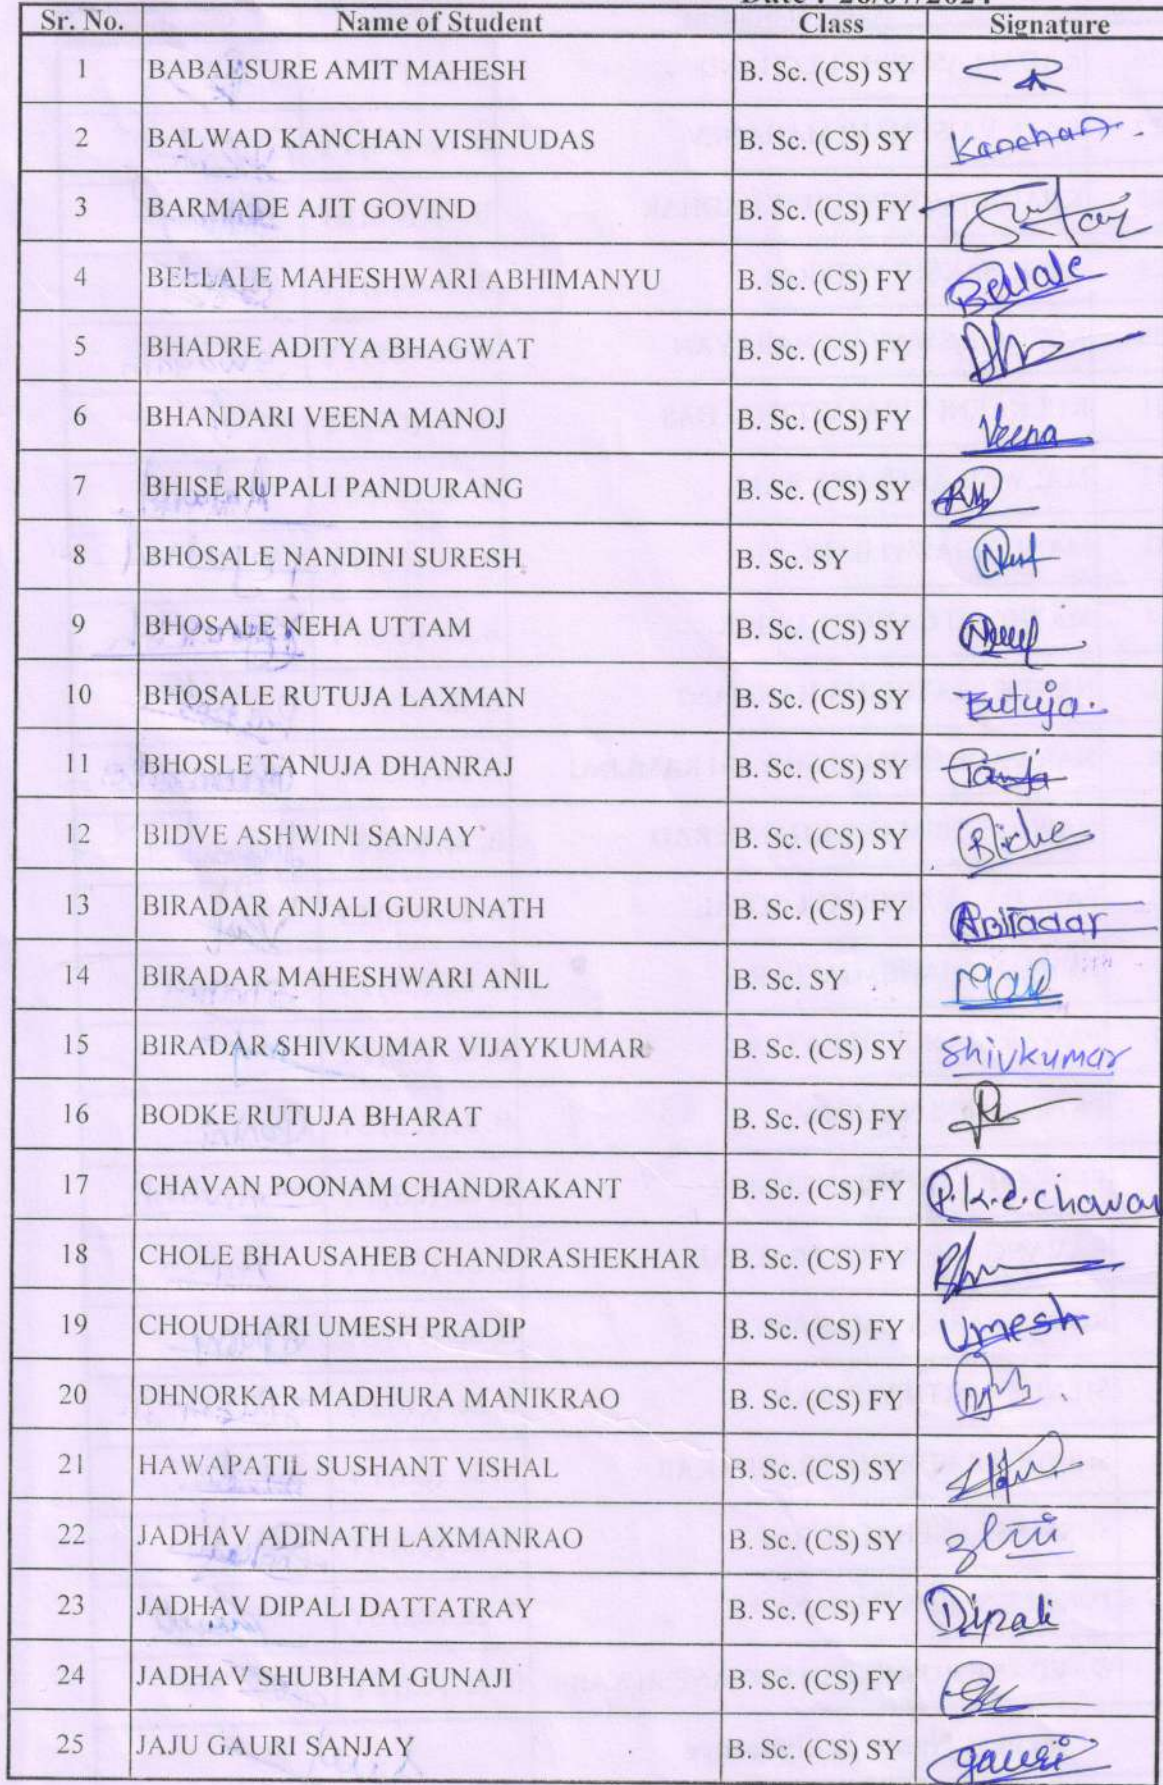 Sr. No. Name of Student Class Signature
1 BABALSURE AMIT MAHESH B. Sc. (CS) SY
2 BALWAD KANCHAN VISHNUDAS B. Sc. (CS) SY Kanchan.
3 BARMADE AJIT GOVIND B. Sc. (CS) FY
4 BELLALE MAHESHWARI ABHIMANYU B. Sc. (CS) FY Bellale
5 BHADRE ADITYA BHAGWAT B. Sc. (CS) FY
6 BHANDARI VEENA MANOJ B. Sc. (CS) FY Veena
7 BHISE RUPALI PANDURANG B. Sc. (CS) SY
8 BHOSALE NANDINI SURESH B. Sc. SY
9 BHOSALE NEHA UTTAM B. Sc. (CS) SY
10 BHOSALE RUTUJA LAXMAN B. Sc. (CS) SY Rutuja.
11 BHOSLE TANUJA DHANRAJ B. Sc. (CS) SY Tanuja
12 BIDVE ASHWINI SANJAY B. Sc. (CS) SY Bidve
13 BIRADAR ANJALI GURUNATH B. Sc. (CS) FY ABiradar
14 BIRADAR MAHESHWARI ANIL B. Sc. SY
15 BIRADAR SHIVKUMAR VIJAYKUMAR B. Sc. (CS) SY Shivkumar
16 BODKE RUTUJA BHARAT B. Sc. (CS) FY
17 CHAVAN POONAM CHANDRAKANT B. Sc. (CS) FY
18 CHOLE BHAUSAHEB CHANDRASHEKHAR B. Sc. (CS) FY
19 CHOUDHARI UMESH PRADIP B. Sc. (CS) FY Umesh
20 DHNORKAR MADHURA MANIKRAO B. Sc. (CS) FY
21 HAWAPATIL SUSHANT VISHAL B. Sc. (CS) SY
22 JADHAV ADINATH LAXMANRAO B. Sc. (CS) SY
23 JADHAV DIPALI DATTATRAY B. Sc. (CS) FY Dipali
24 JADHAV SHUBHAM GUNAJI B. Sc. (CS) FY
25 JAJU GAURI SANJAY B. Sc. (CS) SY gauri